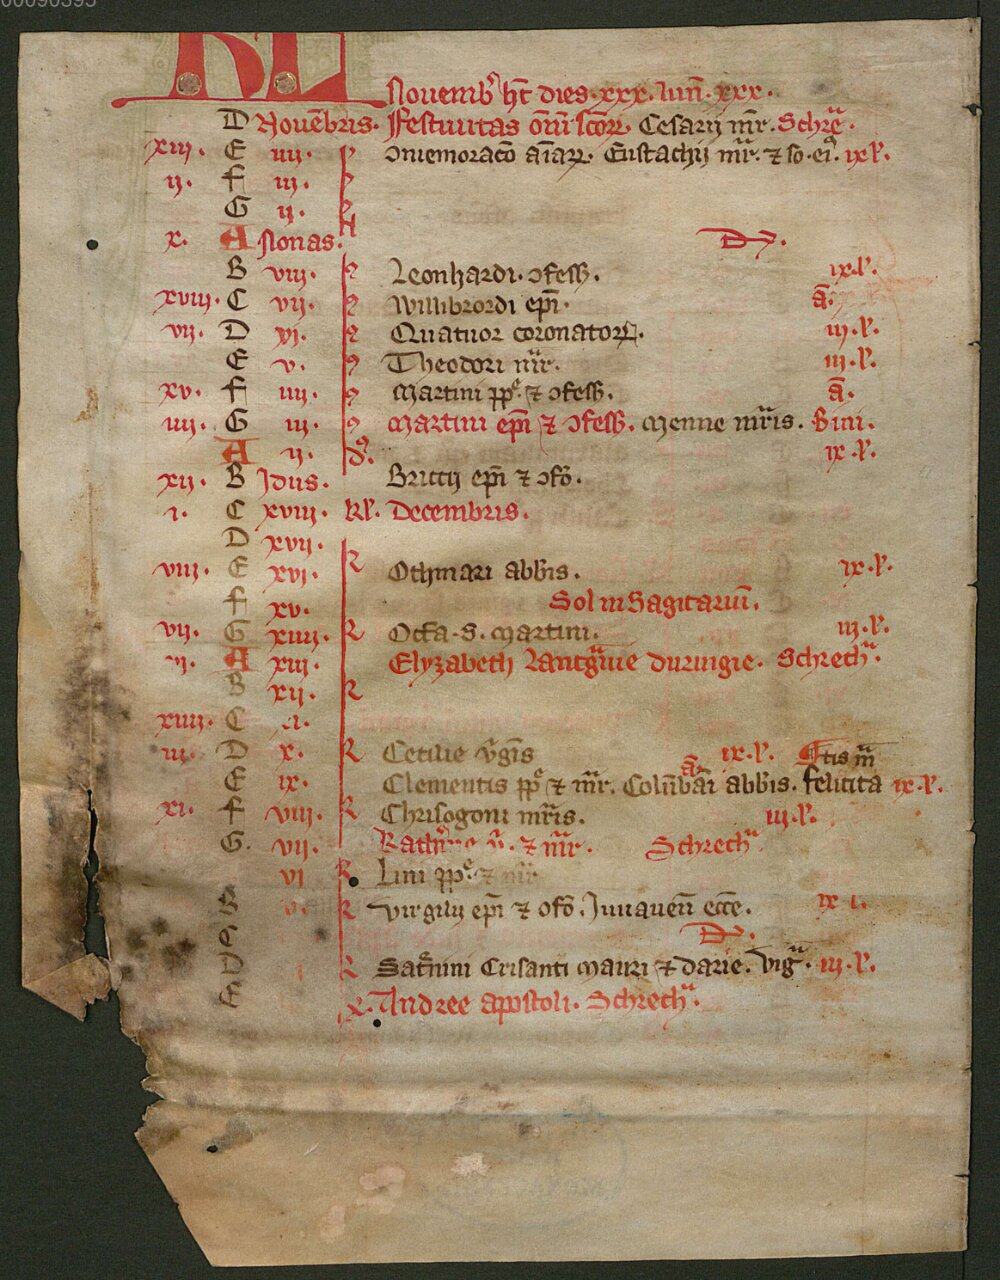 00090395
KL
Novembr̄ ht̄ dies · xxx · lun̄ · xxx ·
D Novēbris · Festivitas om̄ sc̄or · Cesarij mr̄ · Schre ·
xiii · E iiii · 9memoracō aīaꝝ · Eustachij mr̄ · ⁊ so · ei9 · ix l ·
ij · F iii ·
G ij ·
x · A Nonas · D ·
B viii · Leonhardi · ɔfess · ix · l ·
xviii · C vij · Willibrordi epi · a ·
vij · D vi · Quatuor coronatorꝝ · iij · l ·
E v · Theodori mr̄ · iij · l ·
xv · F iiii · Martini ppe · ⁊ ɔfess · a ·
iiii · G iii · Martini epi ⁊ ɔfess · Menne mr̄is · Bini ·
A ij · ix · l ·
xij · B Idus · Briccij epi ⁊ ɔfō ·
i · C xviii · kl · Decembris ·
D xvij ·
viii · E xvi · Othmari abbīs · ix · l ·
F xv · Sol in Sagitariū ·
vij · G xiiii · Octa · S · Martini · iij · l ·
vi · A xiii · Elyzabeth lantgvie duringie · Schrech ·
B xij ·
xiiii · C xi ·
iii · D x · Cecilie v̄gīs ix · l ·
E ix · Clementis ppe ⁊ mr̄ · Colūbāi abbīs · felicita ix · l ·
xi · F viii · Chrisogoni mr̄is · iij · l ·
G · vij · Schrech
vi Lini ppe · ⁊ mr̄
B Virgilij epi ⁊ ɔfō · Iuvaven̄ ecce · ix l ·
C D ·
D Sat̄nini Crisanti Mauri ⁊ darie · vig · iij · l ·
E Andree apostoli · Schrech ·